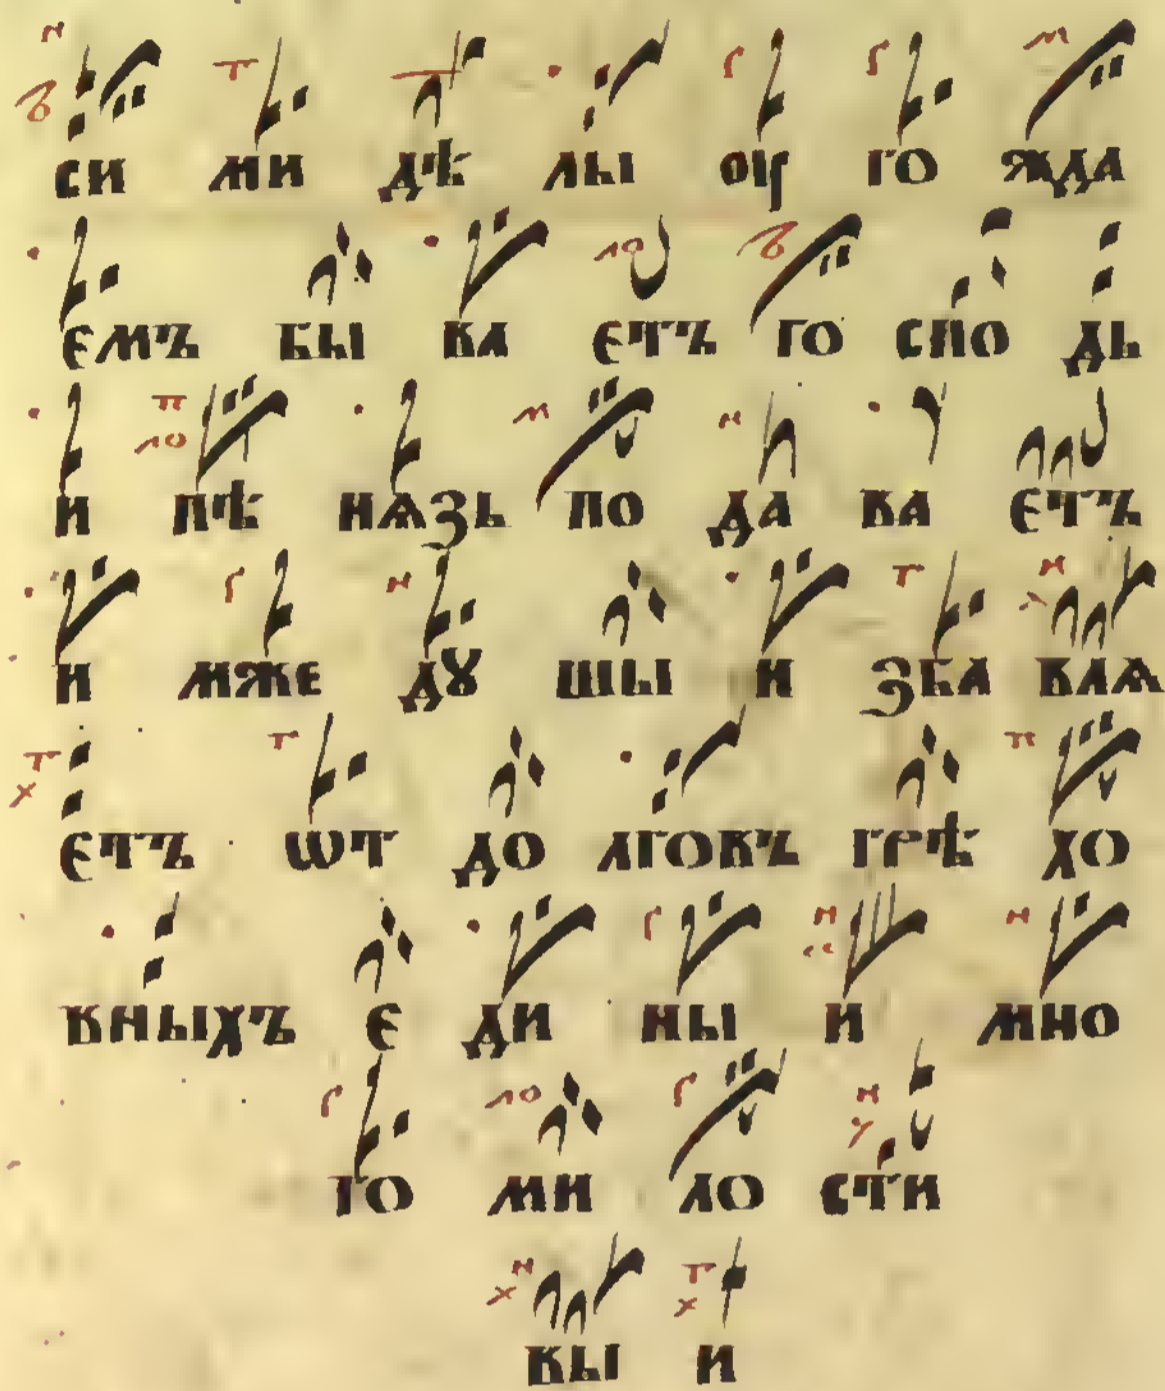 си ми дѣ лы оу го жда
емъ бы ва етъ го спо дь
и пѣ нѧзь по да ва етъ
и мже дꙋ шы и зба влѧ
етъ ѿт до лговъ грѣ хо
вныхъ е ди ны и мно
го ми ло сти
вы и